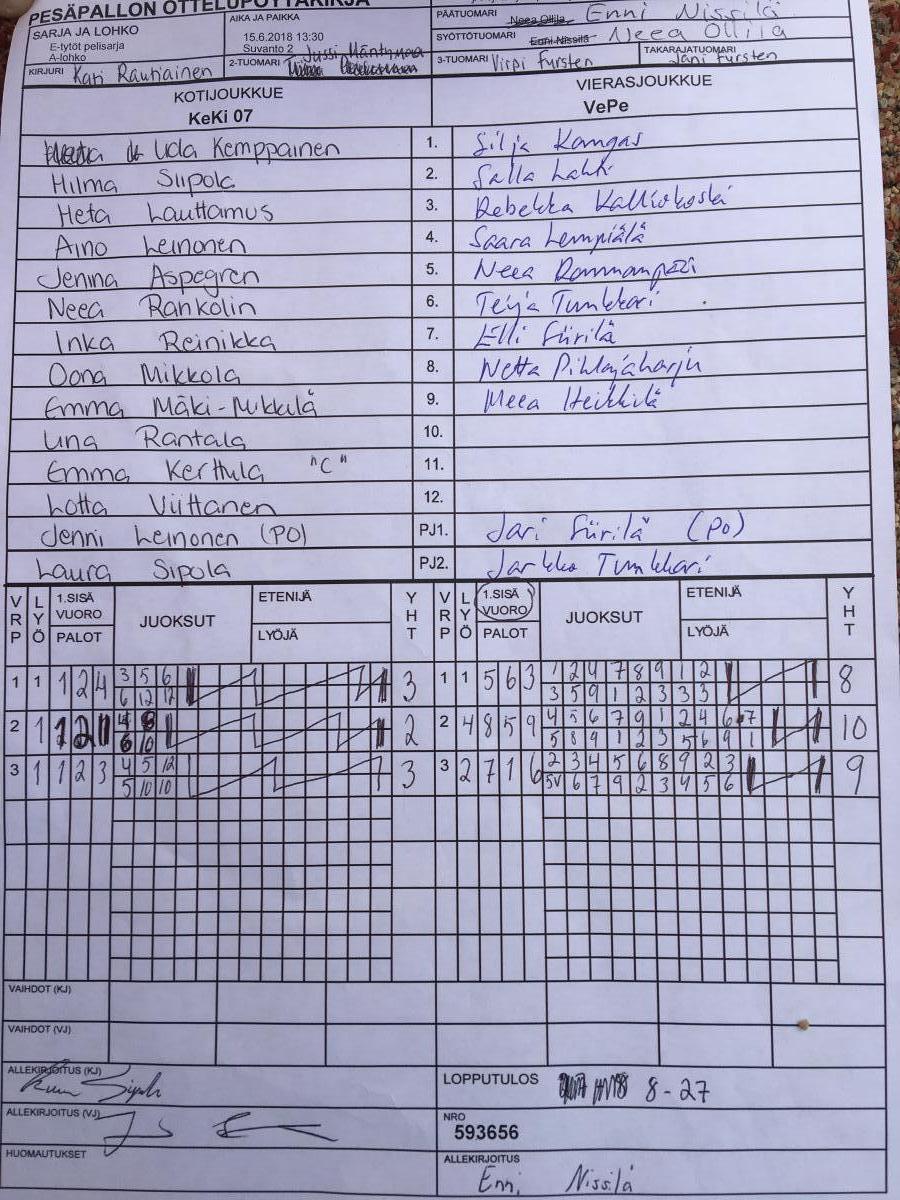 PESÄPALLON OTTELUPÖYTÄKIRJA
SARJA JA LOHKO
E-tytöt pelisarja
A-lohko
AIKA JA PAIKKA
15.6.2018 13:30
Suvanto 2
PÄÄTUOMARI Neea Ollila Enni Nissilä
SYÖTTÖTUOMARI Enni Nissilä Neea Ollila
KIRJURI Kati Rautiainen
2-TUOMARI Jussi Mäntymaa
3-TUOMARI Virpi Fursten
TAKARAJATUOMARI Jani Fursten
KOTIJOUKKUE
KeKi 07
VIERASJOUKKUE
VePe
Uda Kemppainen 1. Silja Kangas
Hilma Siipola 2. Salla Lahti
Heta Lauttamus 3. Rebekka Kalliokoski
Aino Leinonen 4. Saara Lempiälä
Jenina Aspegren 5. Neea
Neea Rankolin 6. Teija Tumkkari
Inka Reinikka 7. Elli Siirilä
Oona Mikkola 8. Netta Pihlajaharju
Emma Mäki-Mikkilä 9. Meea Heikkilä
Una Rantala 10.
Emma Kerttula "C" 11.
Lotta Viittanen 12.
Jenni Leinonen (PO) PJ1. Jari Siirilä (PO)
Laura Sipola PJ2. Jarkko Tumkkari
VRP LYÖ 1.SISÄ VUORO PALOT JUOKSUT ETENIJÄ LYÖJÄ YHT VRP LYÖ 1.SISÄ VUORO PALOT JUOKSUT ETENIJÄ LYÖJÄ YHT
1 1 1 2 4 3 5 6 3 1 1 5 6 3 1 2 4 7 8 9 1 2 8
6 12 12 3 5 9 1 2 3 3 3
2 1 1 2 2 2 4 8 5 9 4 5 6 7 9 1 2 4 6 7 10
6 10 5 8 9 1 2 3 5 6 9 1
3 1 1 2 3 4 5 12 3 3 2 7 1 6 2 3 4 5 6 8 9 2 3 9
5 10 10 5V 6 7 9 2 3 4 5 6
VAIHDOT (KJ)
VAIHDOT (VJ)
ALLEKIRJOITUS (KJ)
LOPPUTULOS 8-27
ALLEKIRJOITUS (VJ)
NRO
593656
HUOMAUTUKSET
ALLEKIRJOITUS
Enni Nissilä